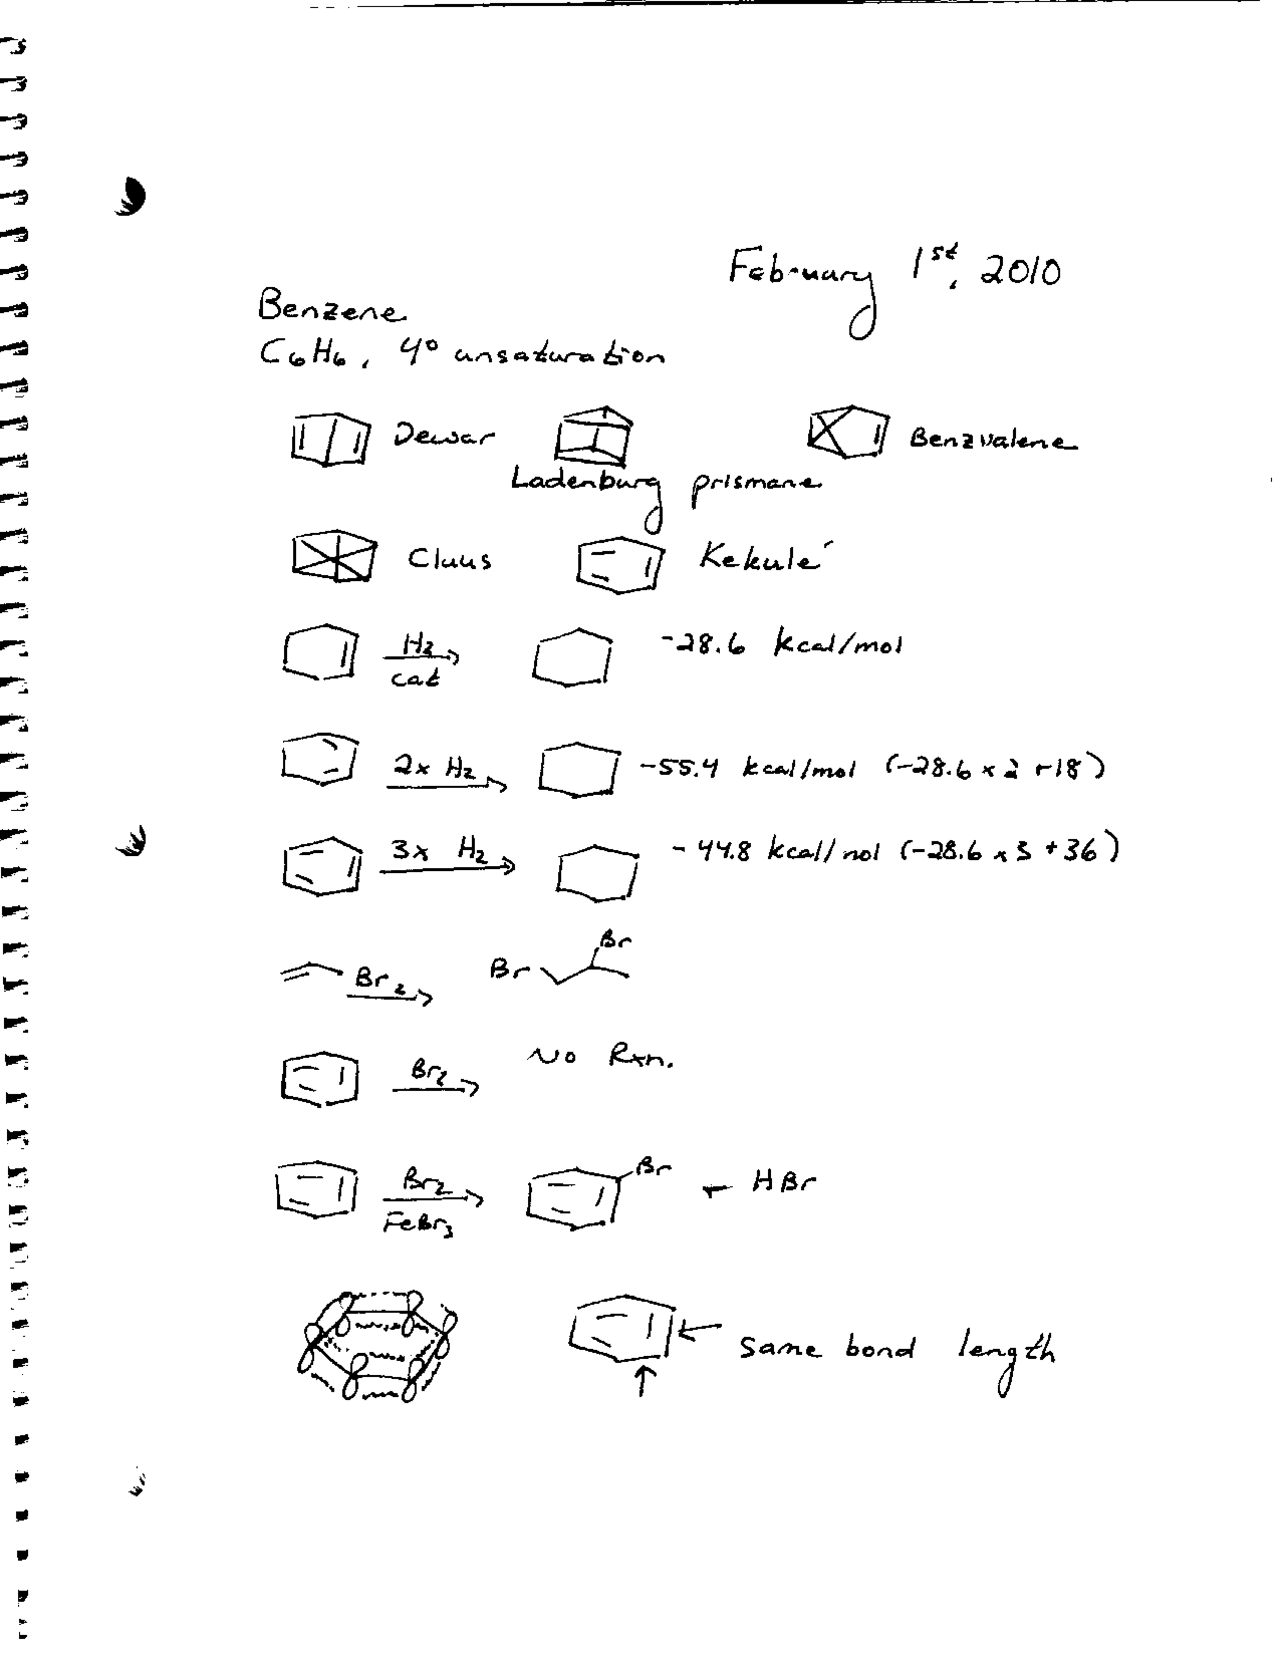 February 1st, 2010
Benzene
C6H6, 4° unsaturation
Dewar
Benzvalene
Ladenburg prismane
Claus Kekulé
H2
cat
-28.6 kcal/mol
2x H2 -55.4 kcal/mol (-28.6 x 2 +18)
3x H2 -44.8 kcal/mol (-28.6 x 3 +36)
Br2 Br Br
Br2 No Rxn.
Br2 Br + HBr
FeBr3
same bond length